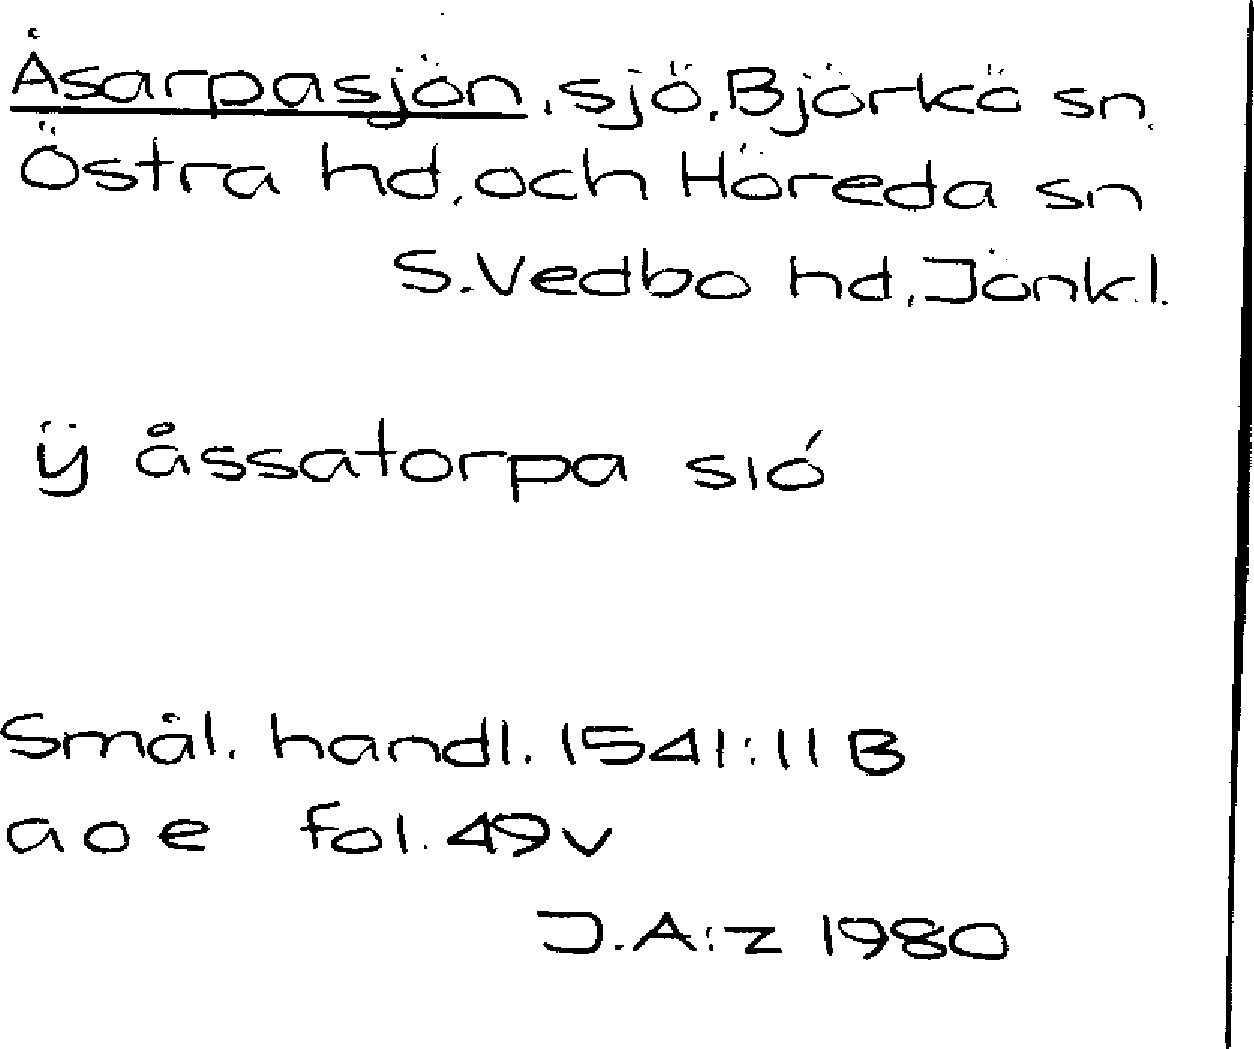 Åsarpasjön, sjö, Björkö sn.
Östra hd, och Höreda sn
S. Vedbo hd, Jönk.l.
ÿ åssatorpa sió
Smål. handl. 1541:11 B
a o e fol. 49v
J.A:z 1980